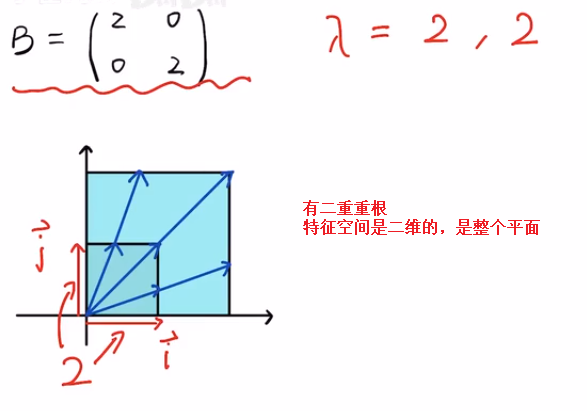 B = ( 2 0
0 2 )
λ = 2 , 2
有二重重根
特征空间是二维的，是整个平面
j
i
2